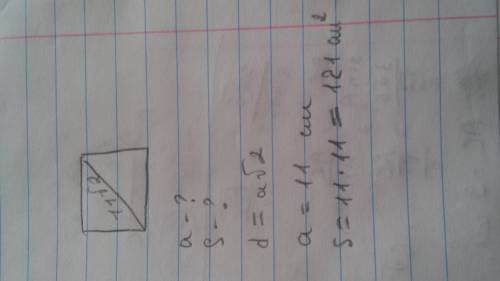 11√2
a - ?
S - ?
d = a√2
a = 11 см
S = 11 · 11 = 121 см²